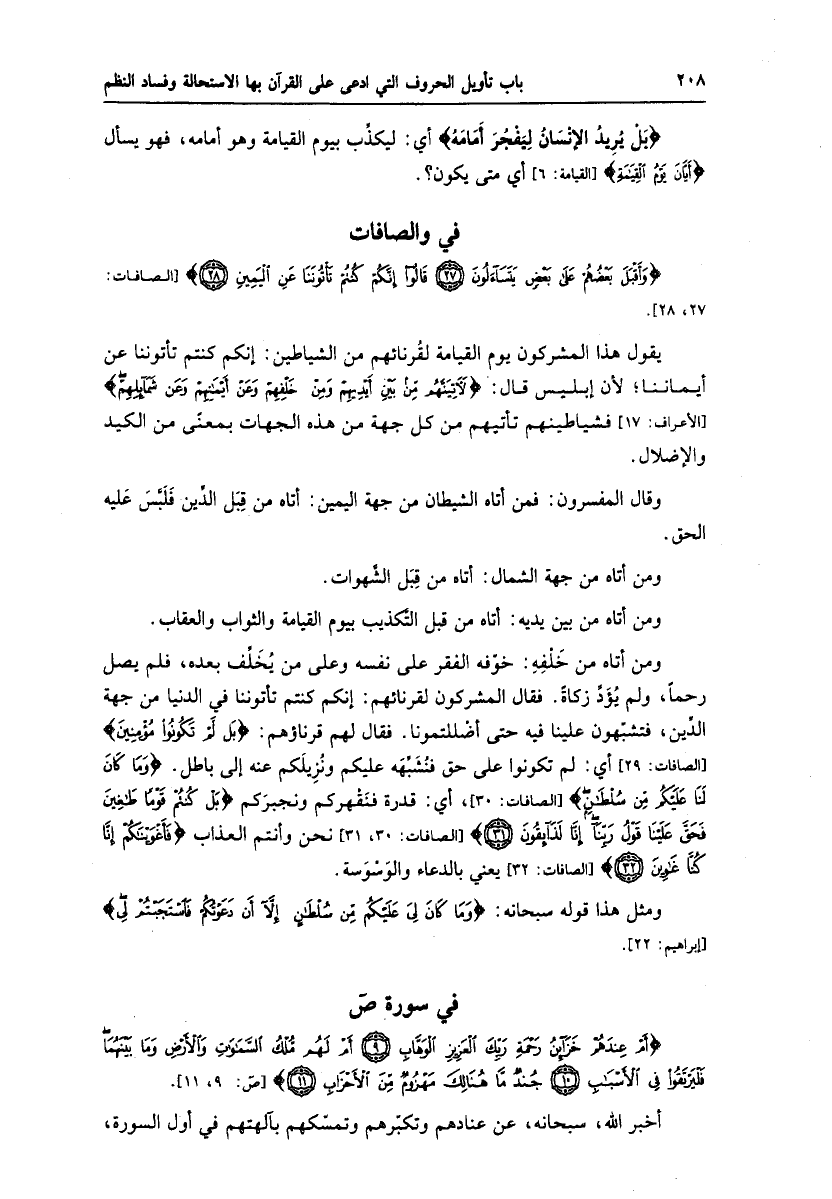 ٢٠٨ باب تأويل الحروف التي ادعى على القرآن بها الاستحالة وفساد النظم
﴿بَلْ يُرِيدُ الإنْسَانُ لِيَفْجُرَ أَمَامَهُ﴾ أي: ليكذِّب بيوم القيامة وهو أمامه، فهو يسأل
﴿أَيَّانَ يَوْمُ ٱلْقِيَٰمَةِ﴾ [القيامة: ٦] أي متى يكون؟.
في والصافات
﴿وَأَقْبَلَ بَعْضُهُمْ عَلَىٰ بَعْضٍ يَتَسَآءَلُونَ ٢٧ قَالُوٓا۟ إِنَّكُمْ كُنتُمْ تَأْتُونَنَا عَنِ ٱلْيَمِينِ ٢٨﴾ [الصافات:
٢٧، ٢٨].
يقول هذا المشركون يوم القيامة لقُرنائهم من الشياطين: إنكم كنتم تأتوننا عن
أيماننا؛ لأن إبليس قال: ﴿لَآتِيَنَّهُم مِّنۢ بَيْنِ أَيْدِيهِمْ وَمِنْ خَلْفِهِمْ وَعَنْ أَيْمَٰنِهِمْ وَعَن شَمَآئِلِهِمْ﴾
[الأعراف: ١٧] فشياطينهم تأتيهم من كل جهة من هذه الجهات بمعنًى من الكيد
والإضلال.
وقال المفسرون: فمن أتاه الشيطان من جهة اليمين: أتاه من قِبَل الدِّين فَلَبَّسَ عَليه
الحق.
ومن أتاه من جهة الشمال: أتاه من قِبَل الشَّهوات.
ومن أتاه من بين يديه: أتاه من قبل التَّكذيب بيوم القيامة والثواب والعقاب.
ومن أتاه من خَلْفِهِ: خوّفه الفقر على نفسه وعلى من يُخَلِّف بعده، فلم يصل
رحماً، ولم يُؤَدِّ زكاةً. فقال المشركون لقرنائهم: إنكم كنتم تأتوننا في الدنيا من جهة
الدِّين، فتشبّهون علينا فيه حتى أضللتمونا. فقال لهم قرناؤهم: ﴿بَل لَّمْ تَكُونُوا۟ مُؤْمِنِينَ﴾
[الصافات: ٢٩] أي: لم تكونوا على حق فنُشَبِّهَه عليكم ونُزِيلَكم عنه إلى باطل. ﴿وَمَا كَانَ
لَنَا عَلَيْكُم مِّن سُلْطَٰنٍ﴾ [الصافات: ٣٠]، أي: قدرة فنَقْهركم ونجبرَكم ﴿بَلْ كُنتُمْ قَوْمًا طَٰغِينَ
فَحَقَّ عَلَيْنَا قَوْلُ رَبِّنَآ إِنَّا لَذَآئِقُونَ ٣١﴾ [الصافات: ٣٠، ٣١] نحن وأنتم العذاب ﴿فَأَغْوَيْنَٰكُمْ إِنَّا
كُنَّا غَٰوِينَ ٣٢﴾ [الصافات: ٣٢] يعني بالدعاء والوَسْوَسة.
ومثل هذا قوله سبحانه: ﴿وَمَا كَانَ لِىَ عَلَيْكُم مِّن سُلْطَٰنٍ إِلَّآ أَن دَعَوْتُكُمْ فَٱسْتَجَبْتُمْ لِى﴾
[إبراهيم: ٢٢].
في سورة صَ
﴿أَمْ عِندَهُمْ خَزَآئِنُ رَحْمَةِ رَبِّكَ ٱلْعَزِيزِ ٱلْوَهَّابِ ٩ أَمْ لَهُم مُّلْكُ ٱلسَّمَٰوَٰتِ وَٱلْأَرْضِ وَمَا بَيْنَهُمَا
فَلْيَرْتَقُوا۟ فِى ٱلْأَسْبَٰبِ ١٠ جُندٌ مَّا هُنَالِكَ مَهْزُومٌ مِّنَ ٱلْأَحْزَابِ ١١﴾ [صَ: ٩، ١١].
أخبر الله، سبحانه، عن عنادهم وتكبّرهم وتمسّكهم بآلهتهم في أول السورة،